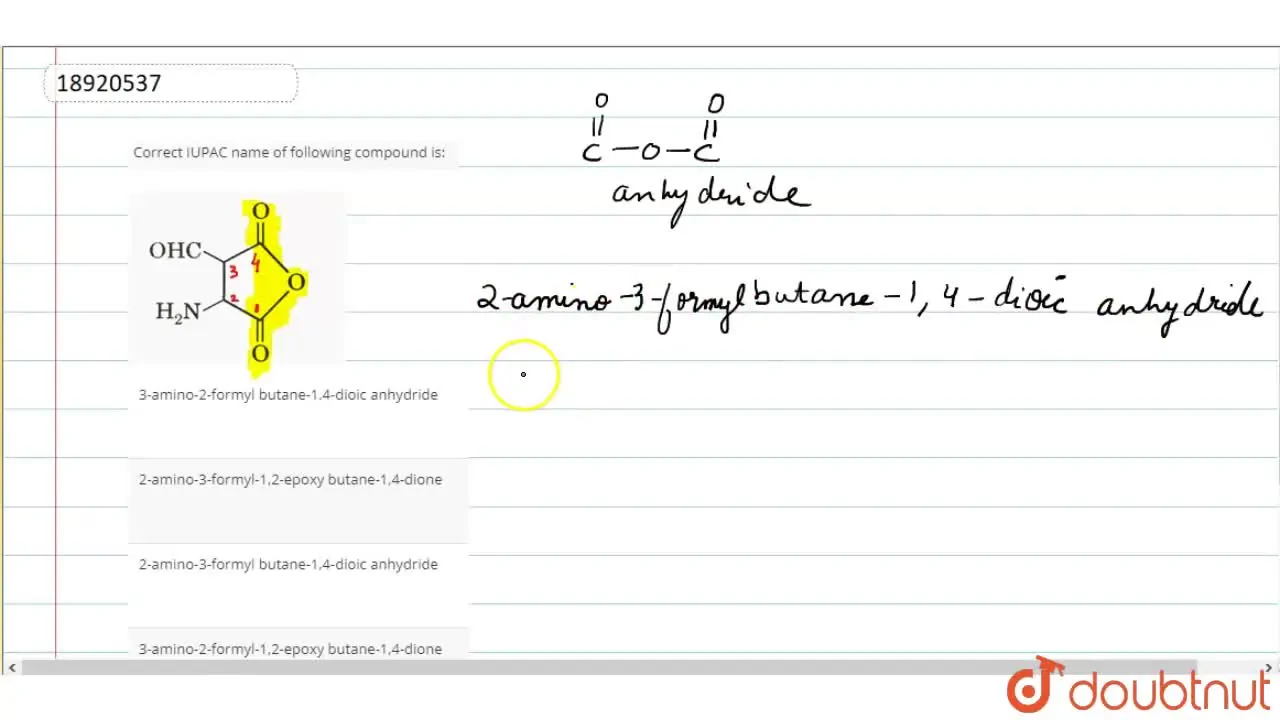 18920537
Correct IUPAC name of following compound is:
O
OHC
4
3
O
2
H₂N
1
O
3-amino-2-formyl butane-1.4-dioic anhydride
2-amino-3-formyl-1,2-epoxy butane-1,4-dione
2-amino-3-formyl butane-1,4-dioic anhydride
3-amino-2-formyl-1,2-epoxy butane-1,4-dione
O O
|| ||
C - O - C
anhydride
2-amino-3-formylbutane-1,4-dioic anhydride
doubtnut